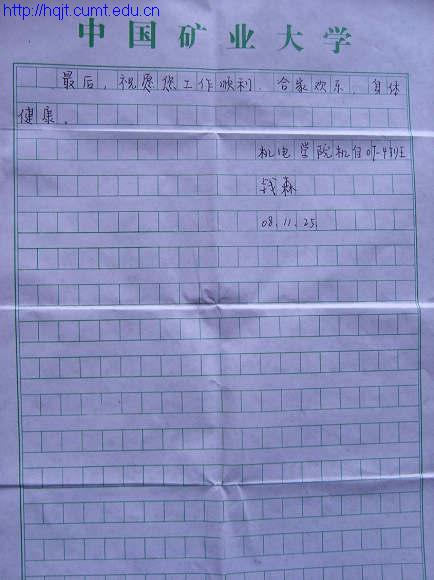 http://hqjt.cumt.edu.cn
中国矿业大学
最后，祝愿您工作顺利，合家欢乐，身体
健康。
机电学院机自07-4班
钱森
08.11.25.